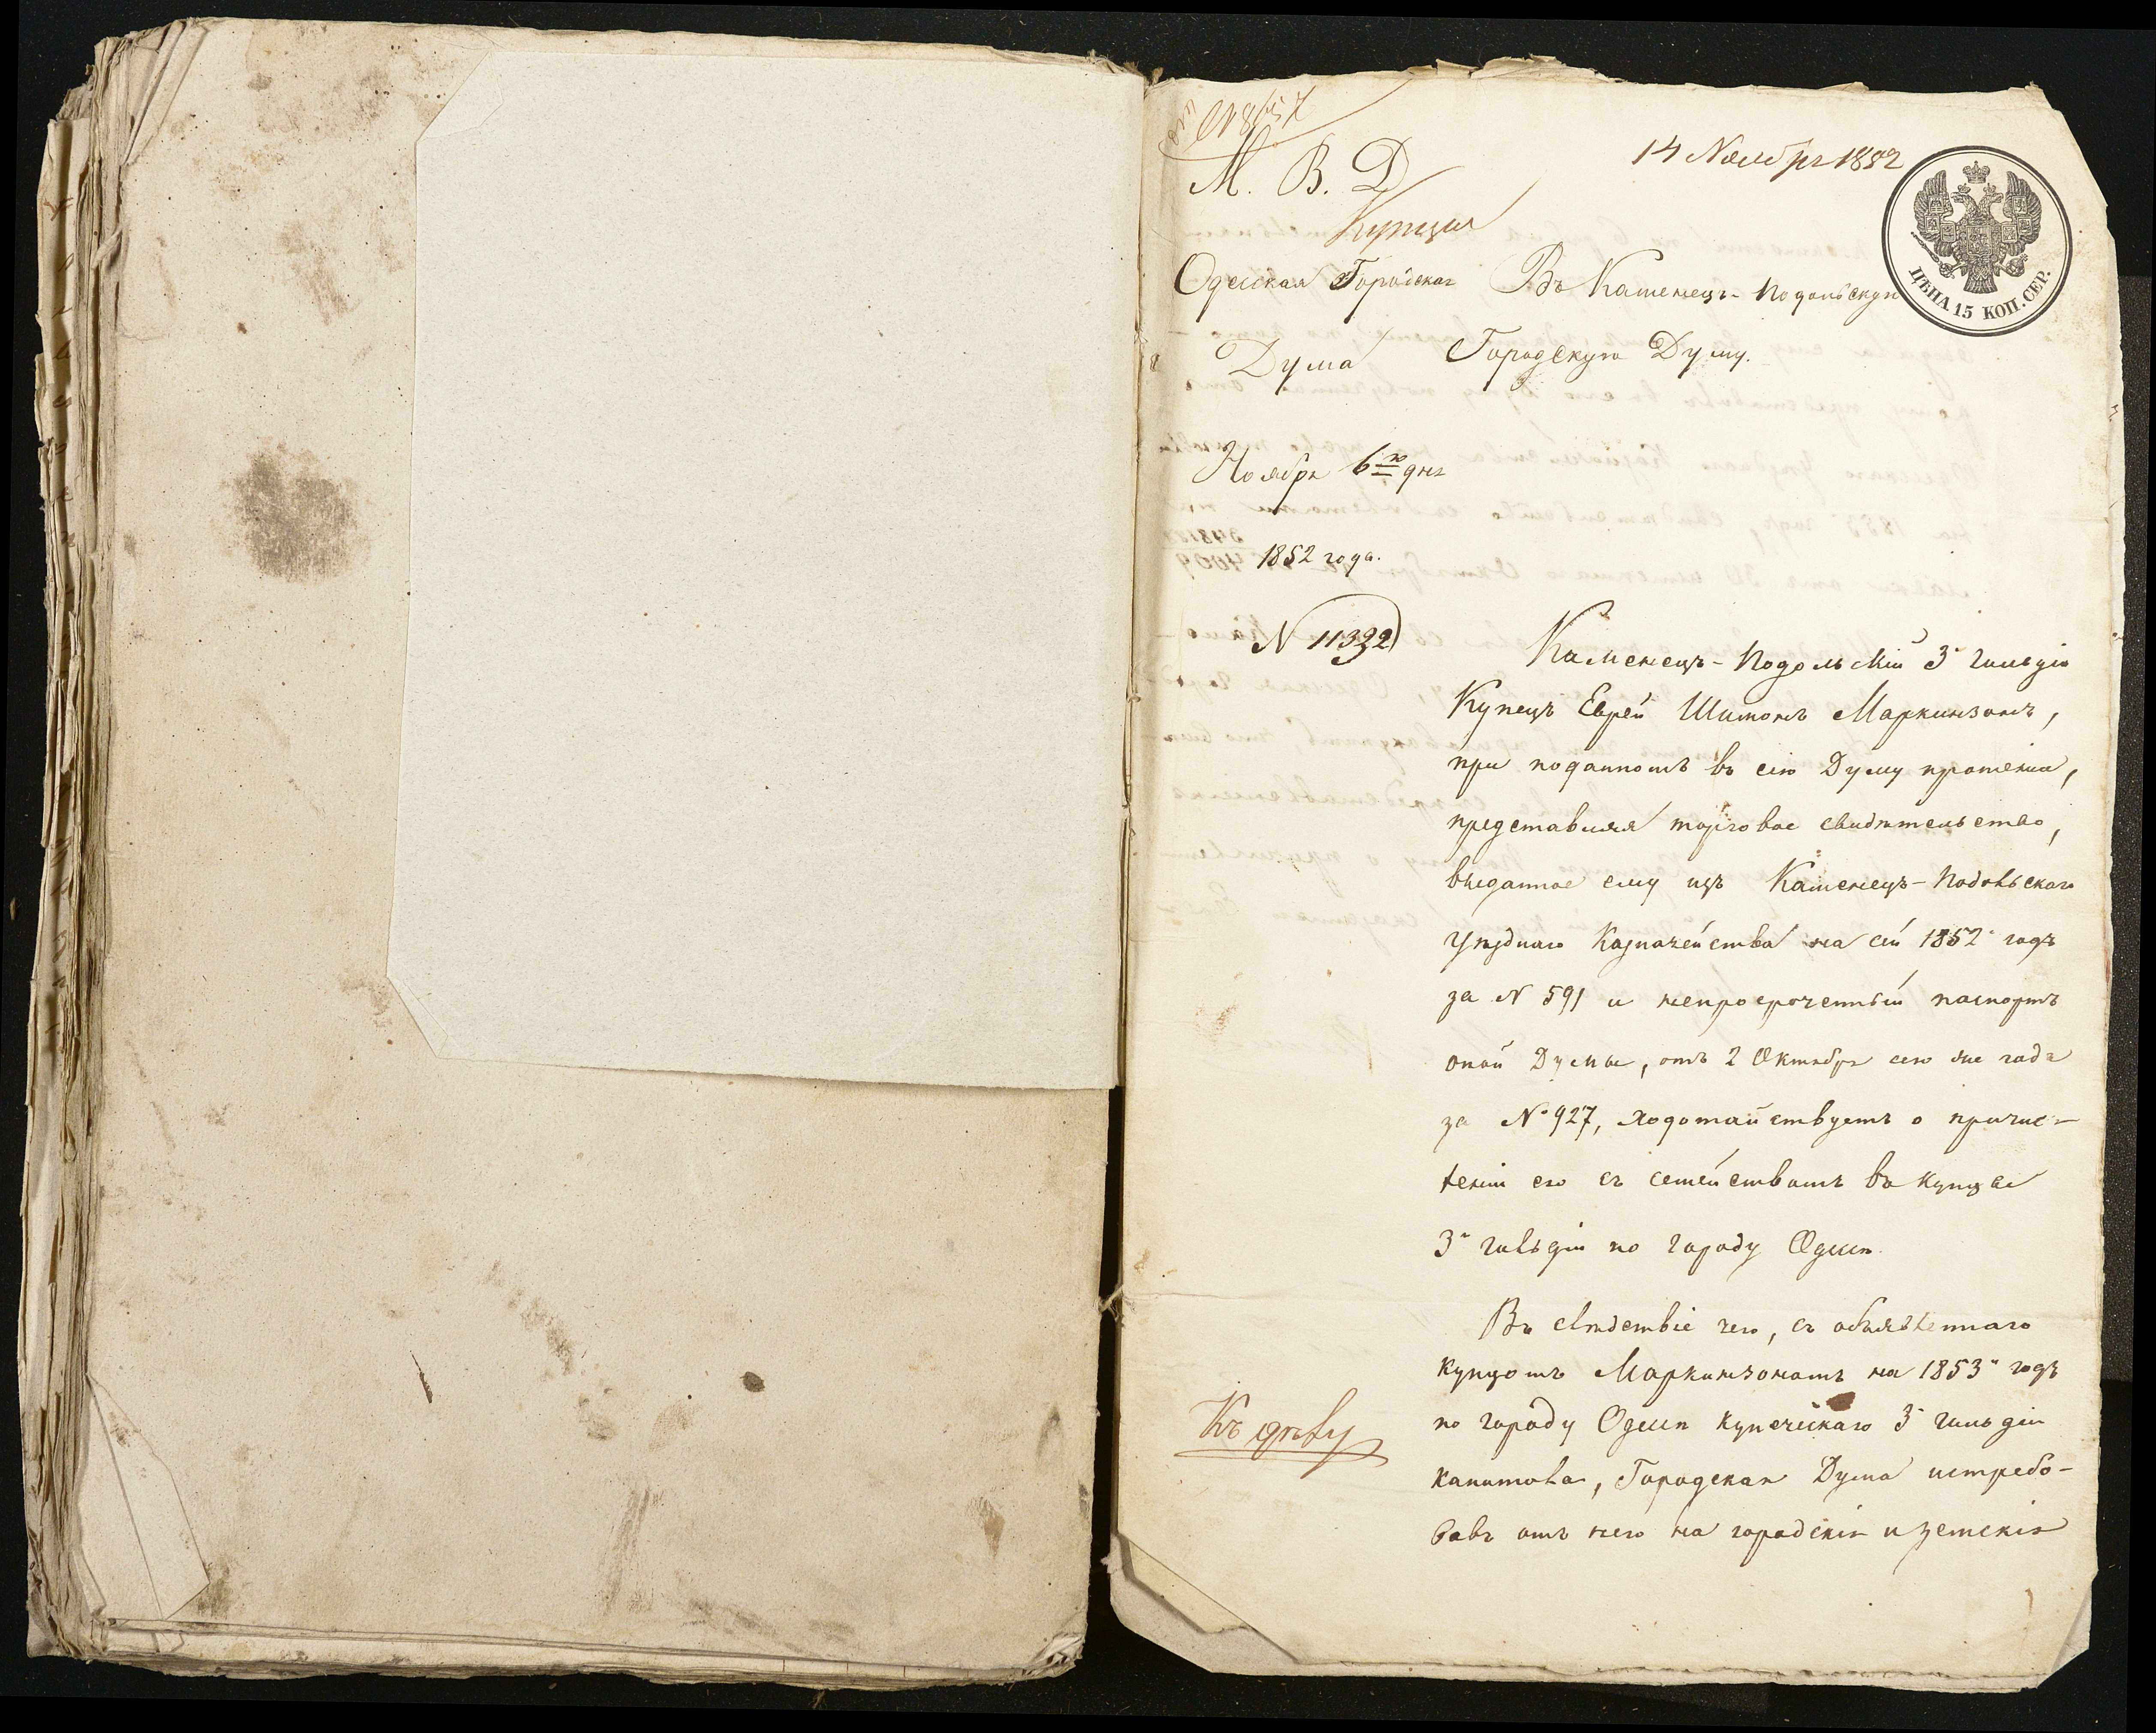 14 Ноября 1852
М. В. Д.
ЦѢНА 15 КОП. СЕР.
Одесская Городская
Дума
Ноября 6го дня
1852 года.
N 11322
Въ Каменецъ-Подольскую
Городскую Думу.
Каменецъ-Подольскій 3й гильдіи
Купецъ Еврей Шимонъ Маркинзонъ,
при поданномъ въ сію Думу прошеніи,
представляя торговое свидѣтельство,
выданное ему изъ Каменецъ-Подольскаго
Уѣзднаго Казначейства на сей 1852й годъ
за N 591 и непросроченный паспортъ
оной Думы, отъ 2 Октября сего же года
за № 927, ходотайствуетъ о причис-
леніи его съ семействомъ въ купцы
3й гильдіи по городу Одессѣ.
Въ слѣдствіе чего, съ объявленнаго
купцомъ Маркинзономъ на 1853й годъ
по городу Одессѣ купеческаго 3й гильдіи
капитала, Городская Дума истребо-
вавъ отъ него на городскія и земскія
Къ дѣлу